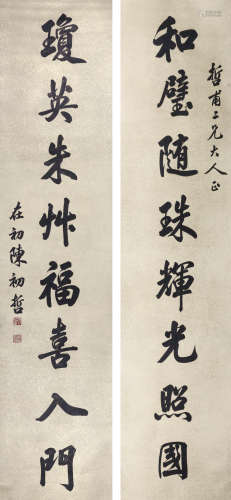 哲甫二兄大人正
和璧随珠輝光照國
瓊英朱艸福喜入門
在初陳初哲